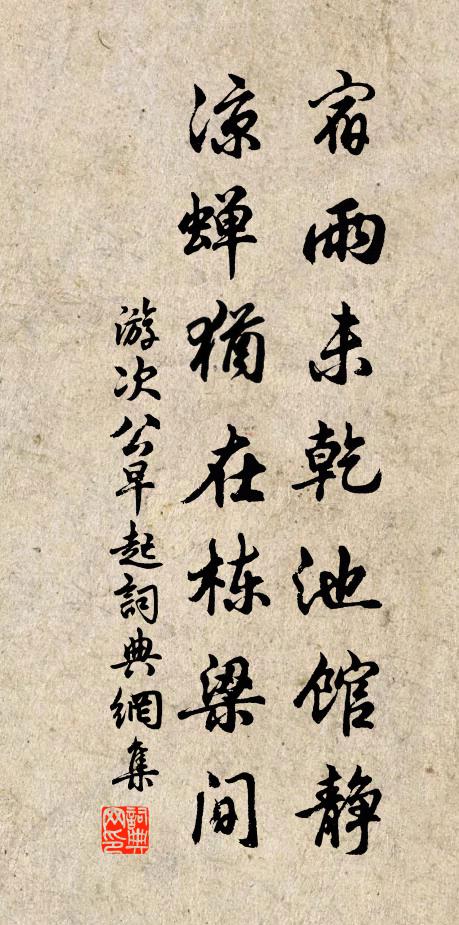 宿雨未乾池馆静
凉蝉猶在栋梁间
游次公早起詞典網集
詞典網印